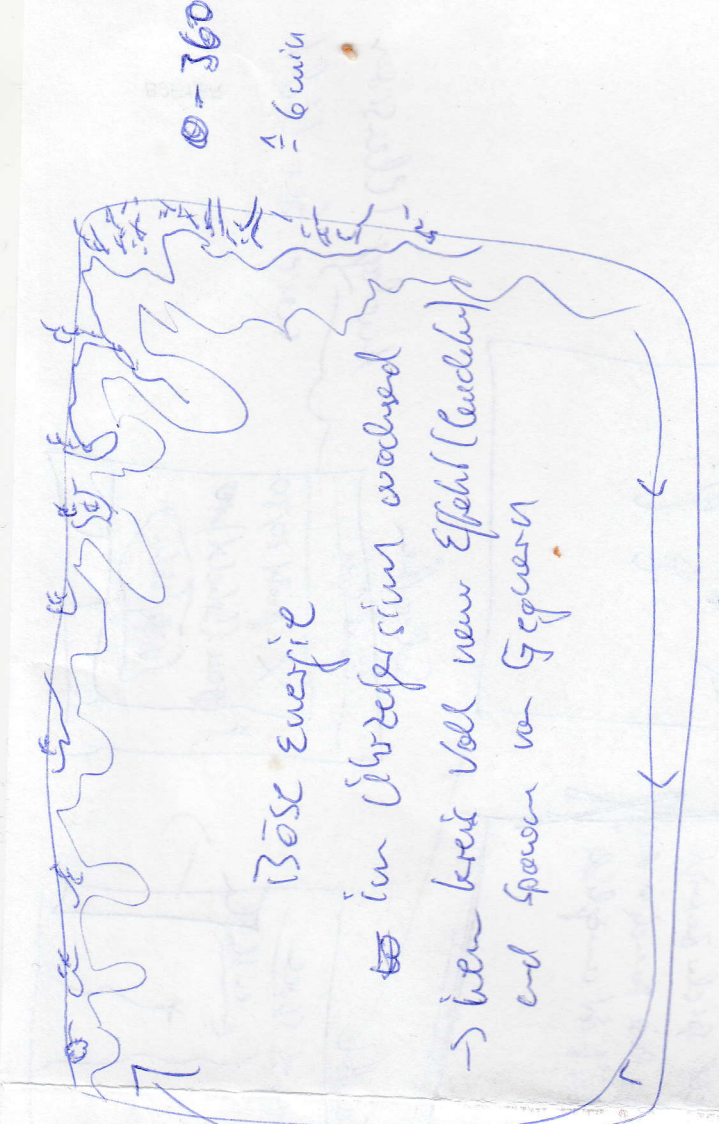 0-360
≙ 6 min
Böse Energie
im Uhrzeigersinn wachsend
→ wenn kreis voll neuer Effekt (leuchten)
und spawn von Gegnern